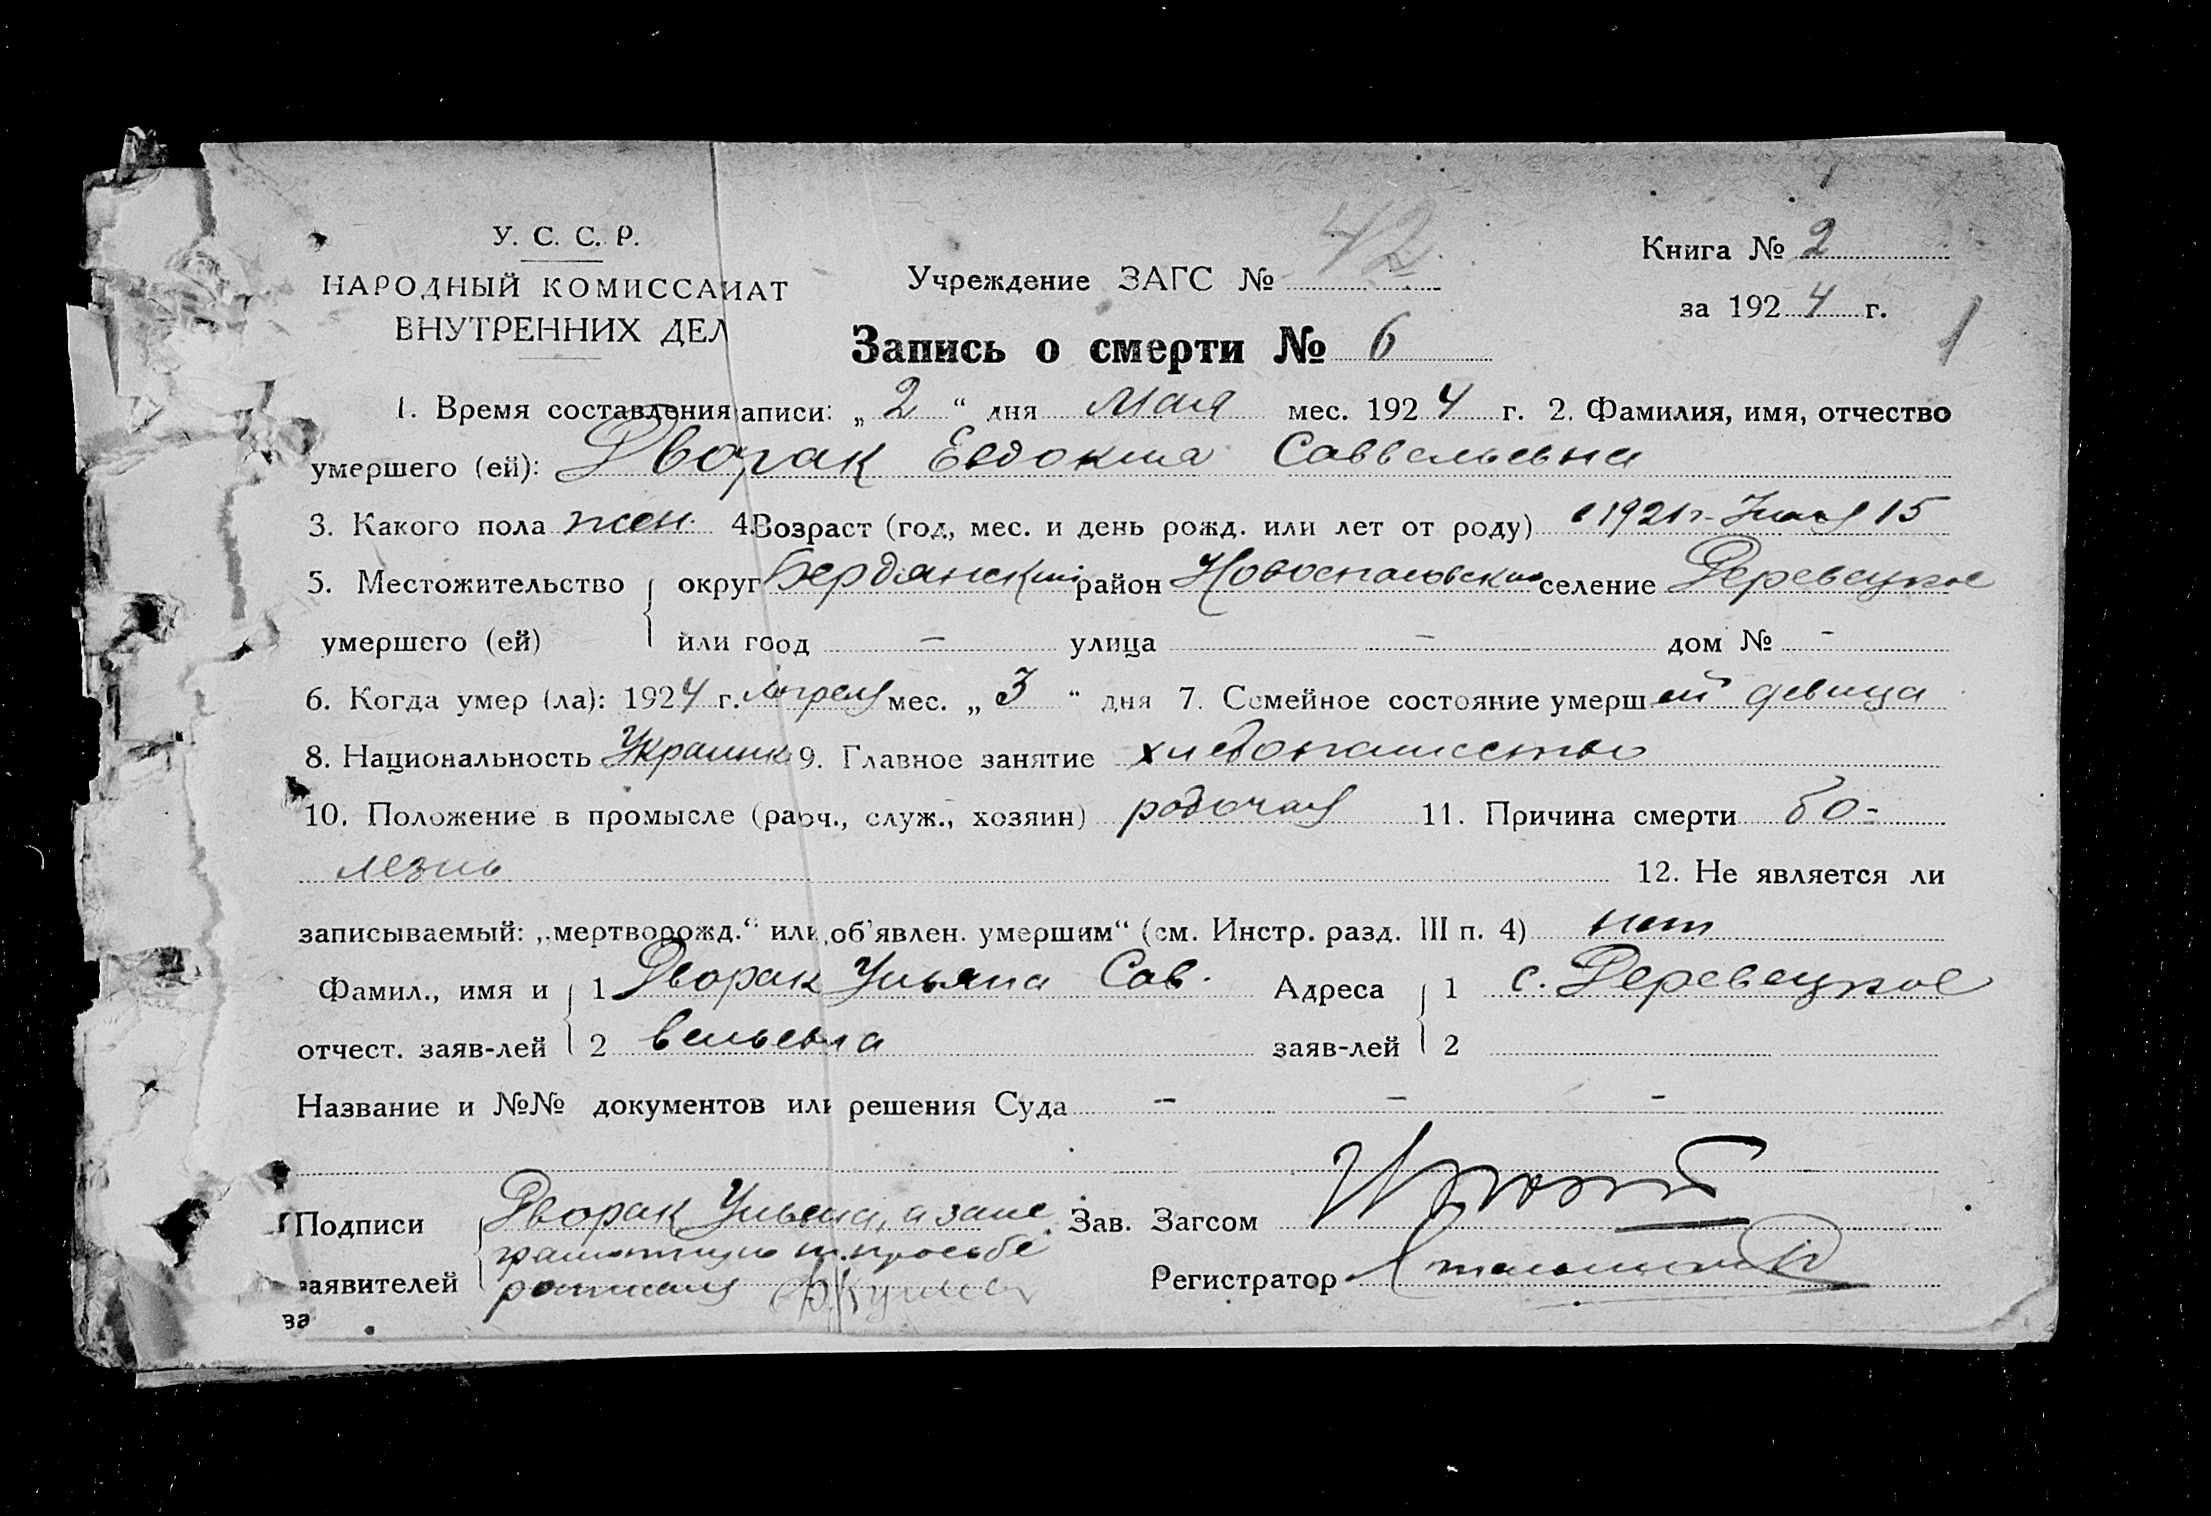 У. С. С. Р.
НАРОДНЫЙ КОМИССАРИАТ
ВНУТРЕННИХ ДЕЛ
Учреждение ЗАГС № 42
Книга № 2
за 1924 г.
1
Запись о смерти № 6
1. Время составления записи: „2“ дня Мая мес. 1924 г. 2. Фамилия, имя, отчество
умершего (ей): Дворак Евдокия Саввельевна
3. Какого пола жен. 4. Возраст (год, мес. и день рожд. или лет от роду) 1921 г. 15
5. Местожительство округ Бердянский район Новоспасовский селение Деревецкое
умершего (ей) или город – улица – дом № –
6. Когда умер (ла): 1924 г. Апреля мес. „3“ дня 7. Семейное состояние умершей девица
8. Национальность Украинка 9. Главное занятие хлебопашество
10. Положение в промысле (рабч., служ., хозяин) рабочая 11. Причина смерти бо-
лезнь 12. Не является ли
записываемый: „мертворожд.“ или „об'явлен. умершим“ (см. Инстр. разд. III п. 4) нет
Фамил., имя и 1 Дворак Ульяна Сав- Адреса 1 с. Деревецкое
отчест. заяв-лей 2 вельевна заяв-лей 2
Название и №№ документов или решения Суда – – –
Подписи Дворак Ульяна, а за не Зав. Загсом
грамотную по просьбе
заявителей Регистратор
за